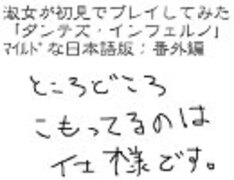 淑女が初見でプレイしてみた
「ダンテズ・インフェルノ」
ﾏｲﾙﾄﾞな日本語版：番外編
ところどころ
こもってるのは
仕様です。